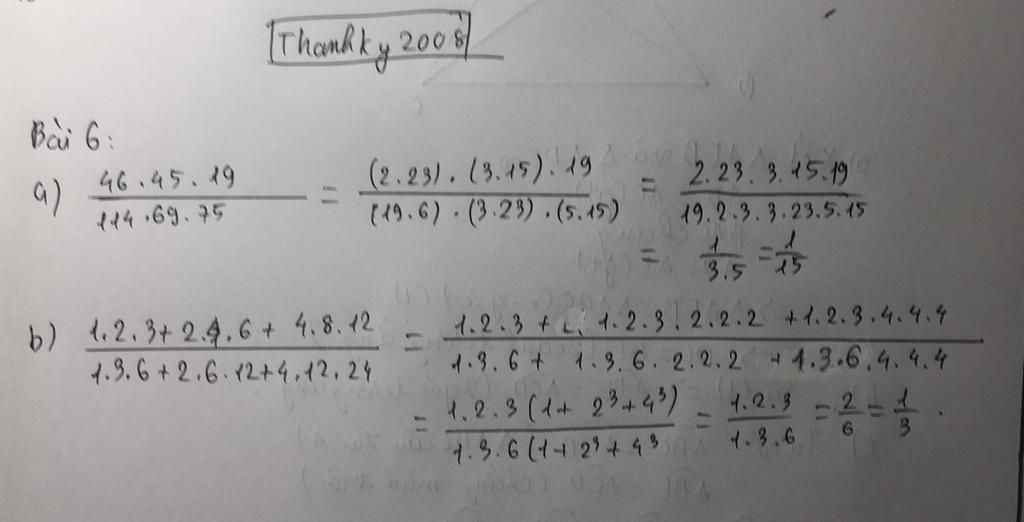 Thanhky 2008
Bài 6:
a) 46.45.19 / 114.69.75 = (2.23).(3.15).19 / (19.6).(3.23).(5.15) = 2.23.3.15.19 / 19.2.3.3.23.5.15
= 1 / 3.5 = 1 / 15
b) 1.2.3+2.4.6+4.8.12 / 1.3.6+2.6.12+4.12.24 = 1.2.3+1.2.3.2.2.2+1.2.3.4.4.4 / 1.3.6+1.3.6.2.2.2+1.3.6.4.4.4
= 1.2.3(1+2³+4³) / 1.3.6(1+2³+4³ = 1.2.3 / 1.3.6 = 2 / 6 = 1 / 3.